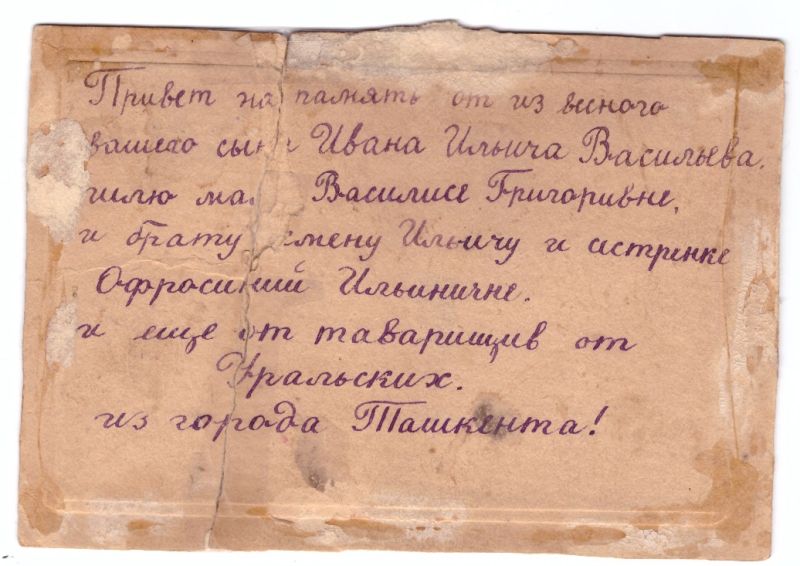 Привет на память от из весного
вашего сына Ивана Ильича Васильева.
шлю Василисе Григоривне,
и брату Ильичу и систринке
Офросиний Ильиничне.
и еще от таварищив от
Уральских.
из города Ташкента!